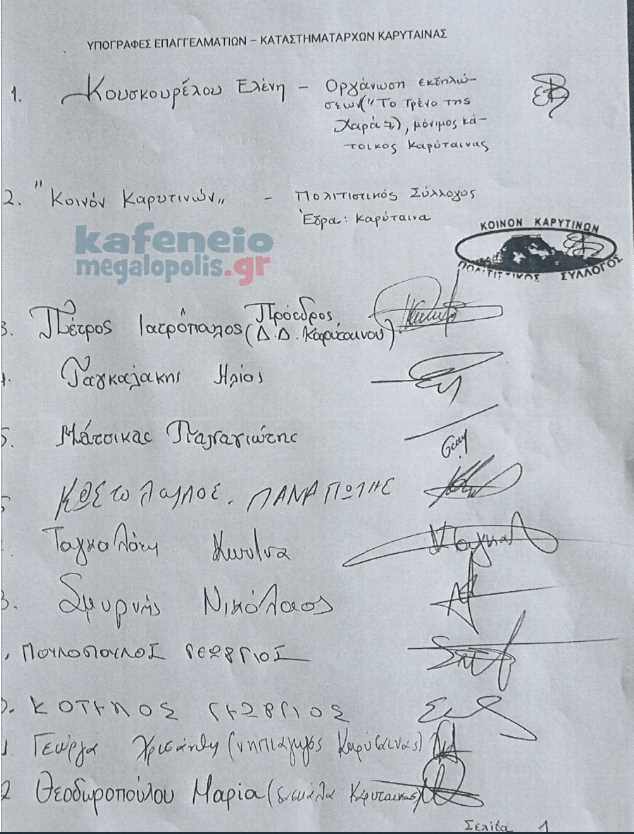 ΥΠΟΓΡΑΦΕΣ ΕΠΑΓΓΕΛΜΑΤΙΩΝ – ΚΑΤΑΣΤΗΜΑΤΑΡΧΩΝ ΚΑΡΥΤΑΙΝΑΣ
1. Κουσκουρέλου Ελένη – Οργάνωση εκδηλώ-
σεων ("Το Τρένο της
Χαράς"), μόνιμος κά-
τοικος Καρύταινας
2. "Κοινόν Καρυτινών" - Πολιτιστικός Σύλλογος
Έδρα: Καρύταινα
ΚΟΙΝΟΝ ΚΑΡΥΤΙΝΩΝ
ΠΟΛΙΤΙΣΤΙΚΟΣ ΣΥΛΛΟΓΟΣ
kafeneio
megalopolis.gr
3. Πέτρος Ιατρόπαλος (Πρόεδρος
Δ.Δ. Καρύταινας)
Ταγκαλάκης Ηλίας
5. Μάτσικας Παναγιώτης
ΠΑΝΑΓΙΩΤΗΣ
Ταγκαλάκη
Σμυρνής Νικόλαος
ΠουλοπουλοΣ ΓεωργιοΣ
ΓΕΩΡΓΙΟΣ
Γεώργα Χρισάνθη (νηπιαγωγός Καρύταινας)
2 Θεοδωροπούλου Μαρία (δασκάλα Καρύταινας)
Σελίδα 1